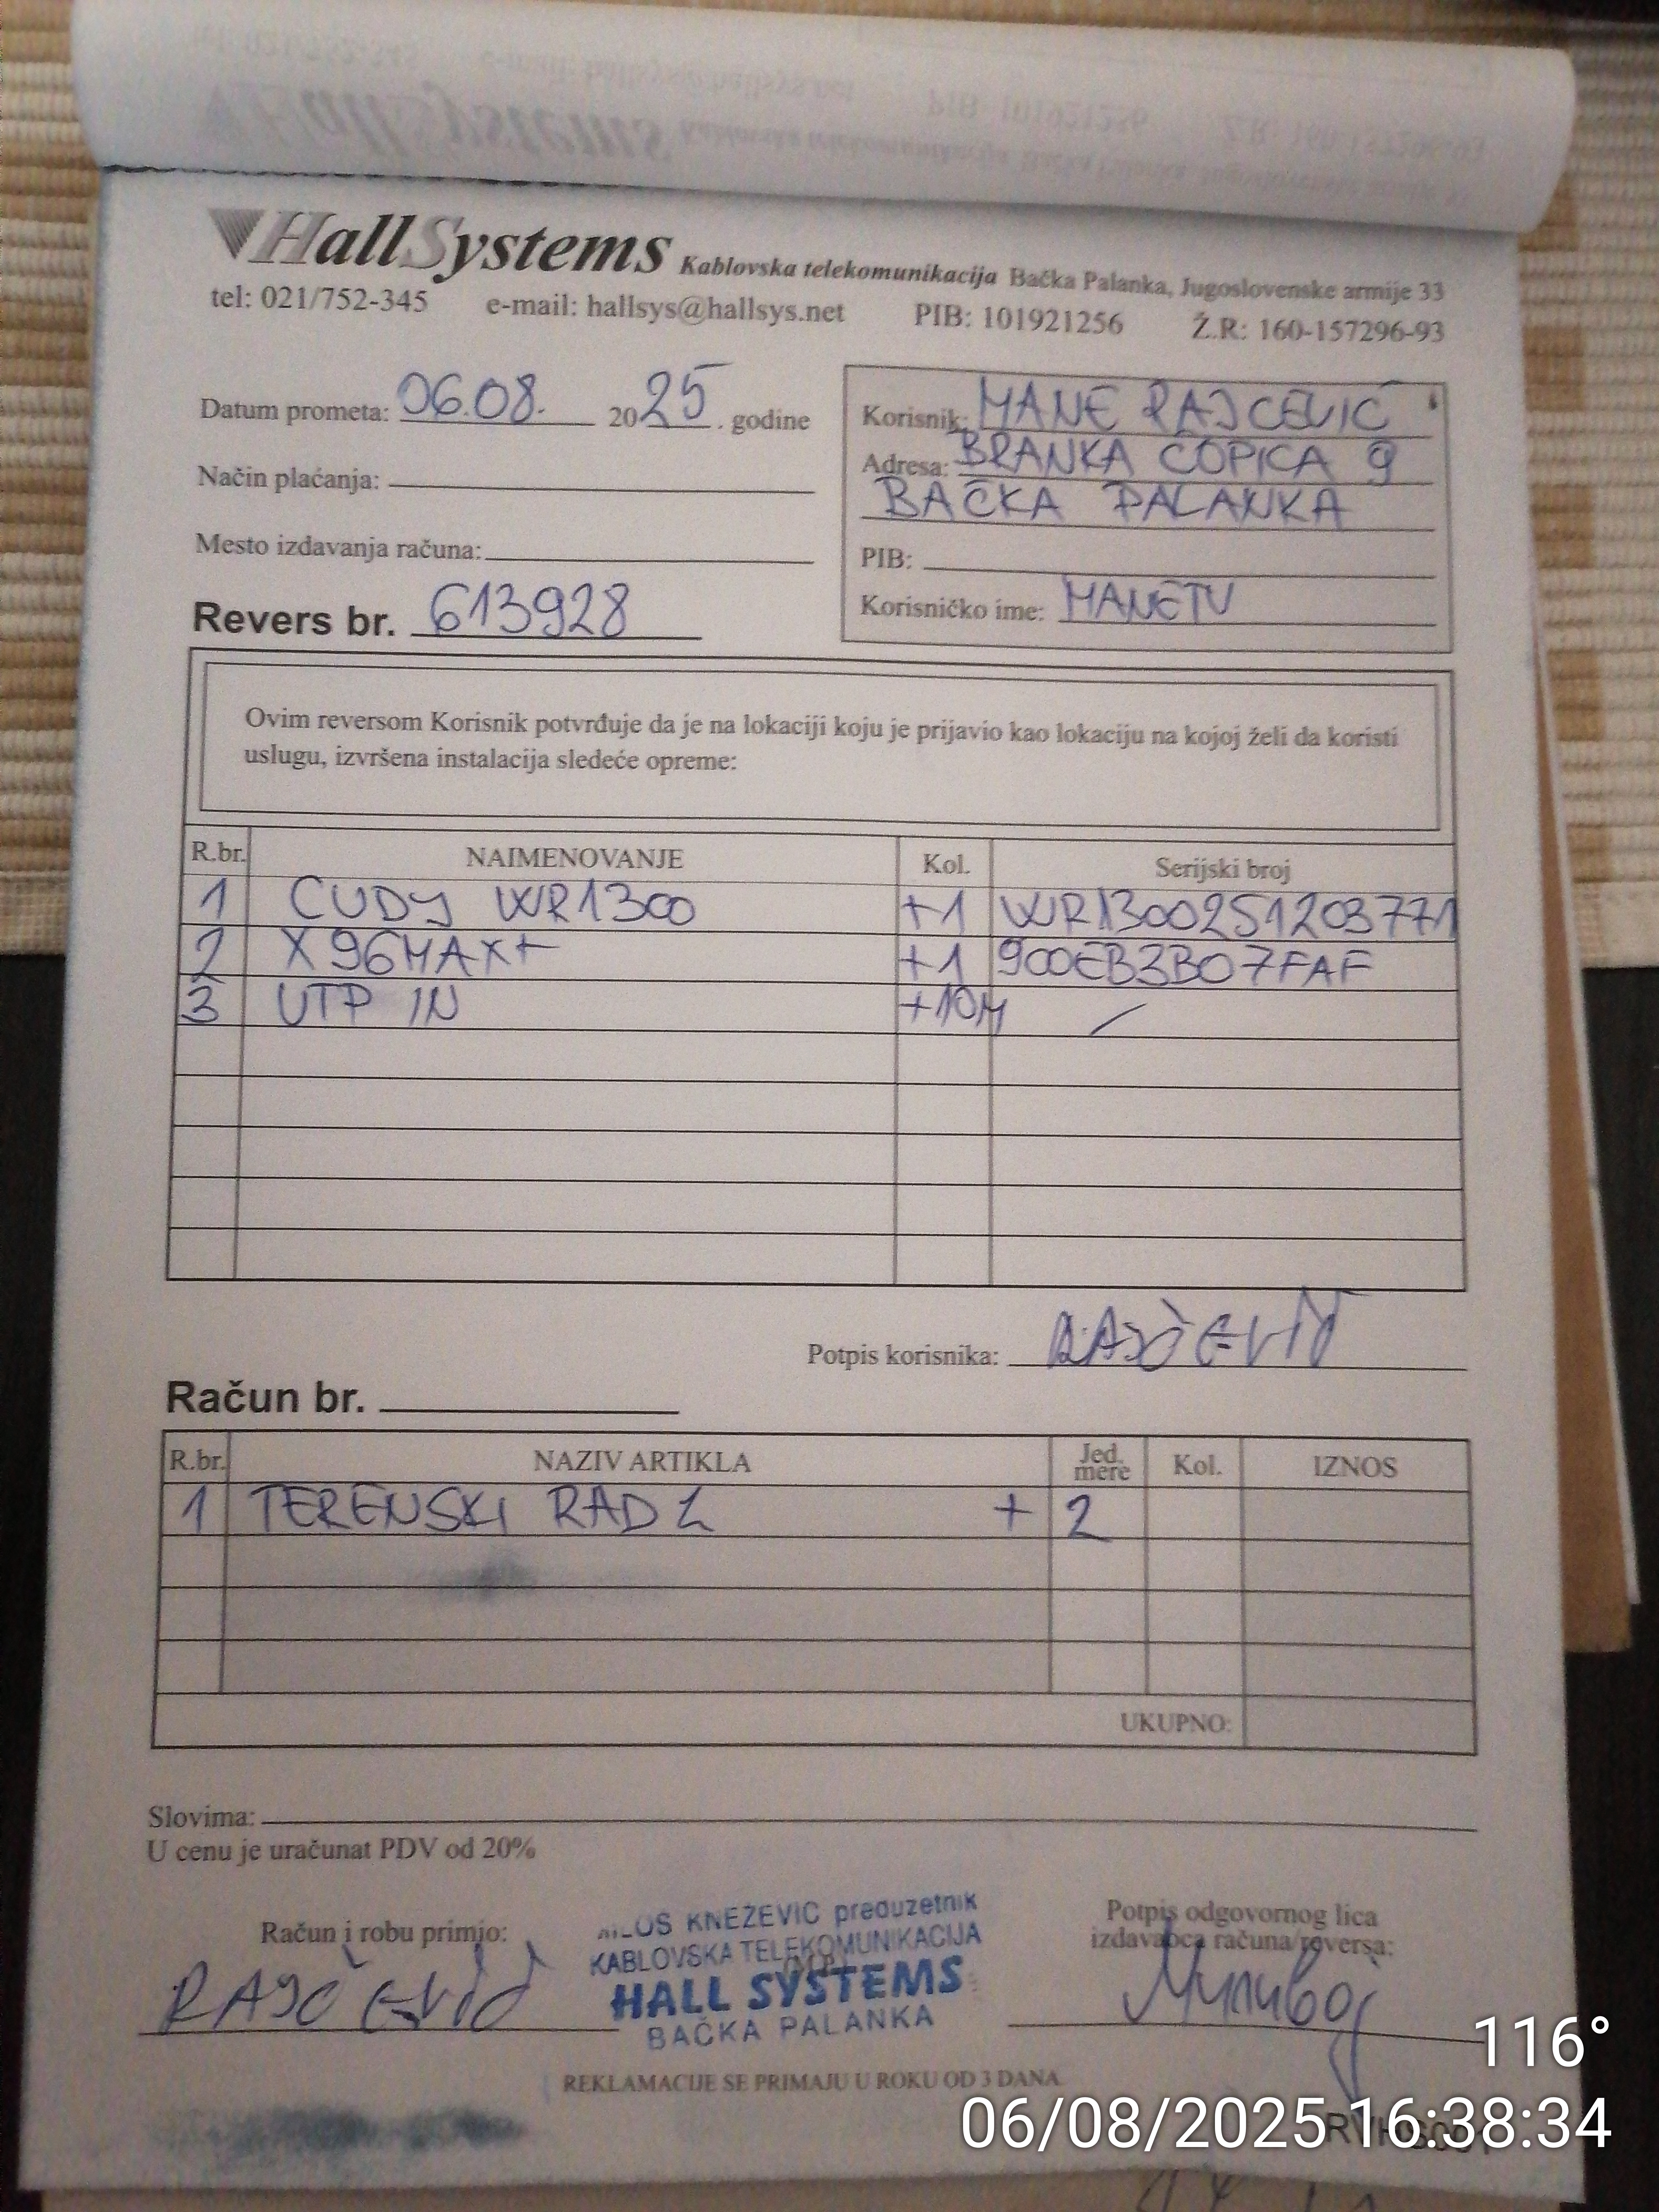 HallSystems Kablovska telekomunikacija Bačka Palanka, Jugoslovenske armije 33
tel: 021/752-345 e-mail: hallsys@hallsys.net PIB: 101921256 Ž.R: 160-157296-93
Datum prometa: 06.08. 2025. godine
Način plaćanja:
Mesto izdavanja računa:
Revers br. 613928
Korisnik: MANE RAJCEVIĆ
Adresa: BRANKA COPICA 9
BAČKA PALANKA
PIB:
Korisničko ime: MANETV
Ovim reversom Korisnik potvrđuje da je na lokaciji koju je prijavio kao lokaciju na kojoj želi da koristi
uslugu, izvršena instalacija sledeće opreme:
R.br. NAIMENOVANJE Kol. Serijski broj
1 CUDY WR1300 +1 WR1300251203771
2 X96MAX+ +1 900EB3B07FAF
3 UTP IN +10M /
Potpis korisnika: RAJČEVIĆ
Račun br.
R.br. NAZIV ARTIKLA Jed. mere Kol. IZNOS
1 TERENSKI RAD 2 + 2
UKUPNO:
Slovima:
U cenu je uračunat PDV od 20%
Račun i robu primio:
RAJČEVIĆ
MILOŠ KNEŽEVIĆ preduzetnik
KABLOVSKA TELEKOMUNIKACIJA
(M.P.)
HALL SYSTEMS
BAČKA PALANKA
Potpis odgovornog lica
izdavaoca računa/reversa:
REKLAMACIJE SE PRIMAJU U ROKU OD 3 DANA
116°
06/08/2025 16:38:34